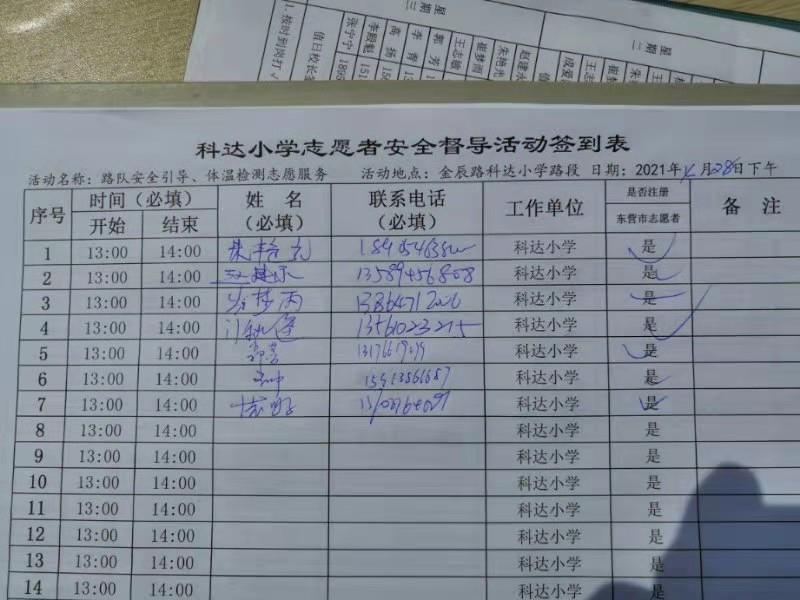 星期三
星期二
1、按时到岗打
值日校长
张宁宁
李殿魁
高扬
李青
郭芳
王志敏
崔梦雨
朱艳光
赵建永
科达小学志愿者安全督导活动签到表
活动名称：路队安全引导、体温检测志愿服务 活动地点：金辰路科达小学路段 日期：2021年 月28日下午
序号 时间（必填） 姓 名（必填） 联系电话（必填） 工作单位 是否注册东营市志愿者 备 注
开始 结束
1 13:00 14:00 科达小学 是
2 13:00 14:00 13589456808 科达小学 是
3 13:00 14:00 科达小学 是
4 13:00 14:00 13561023215 科达小学 是
5 13:00 14:00 科达小学 是
6 13:00 14:00 科达小学 是
7 13:00 14:00 科达小学 是
8 13:00 14:00 科达小学 是
9 13:00 14:00 科达小学 是
10 13:00 14:00 科达小学 是
11 13:00 14:00 科达小学 是
12 13:00 14:00 科达小学 是
13 13:00 14:00 科达小学 是
14 13:00 14:00 科达小学 是